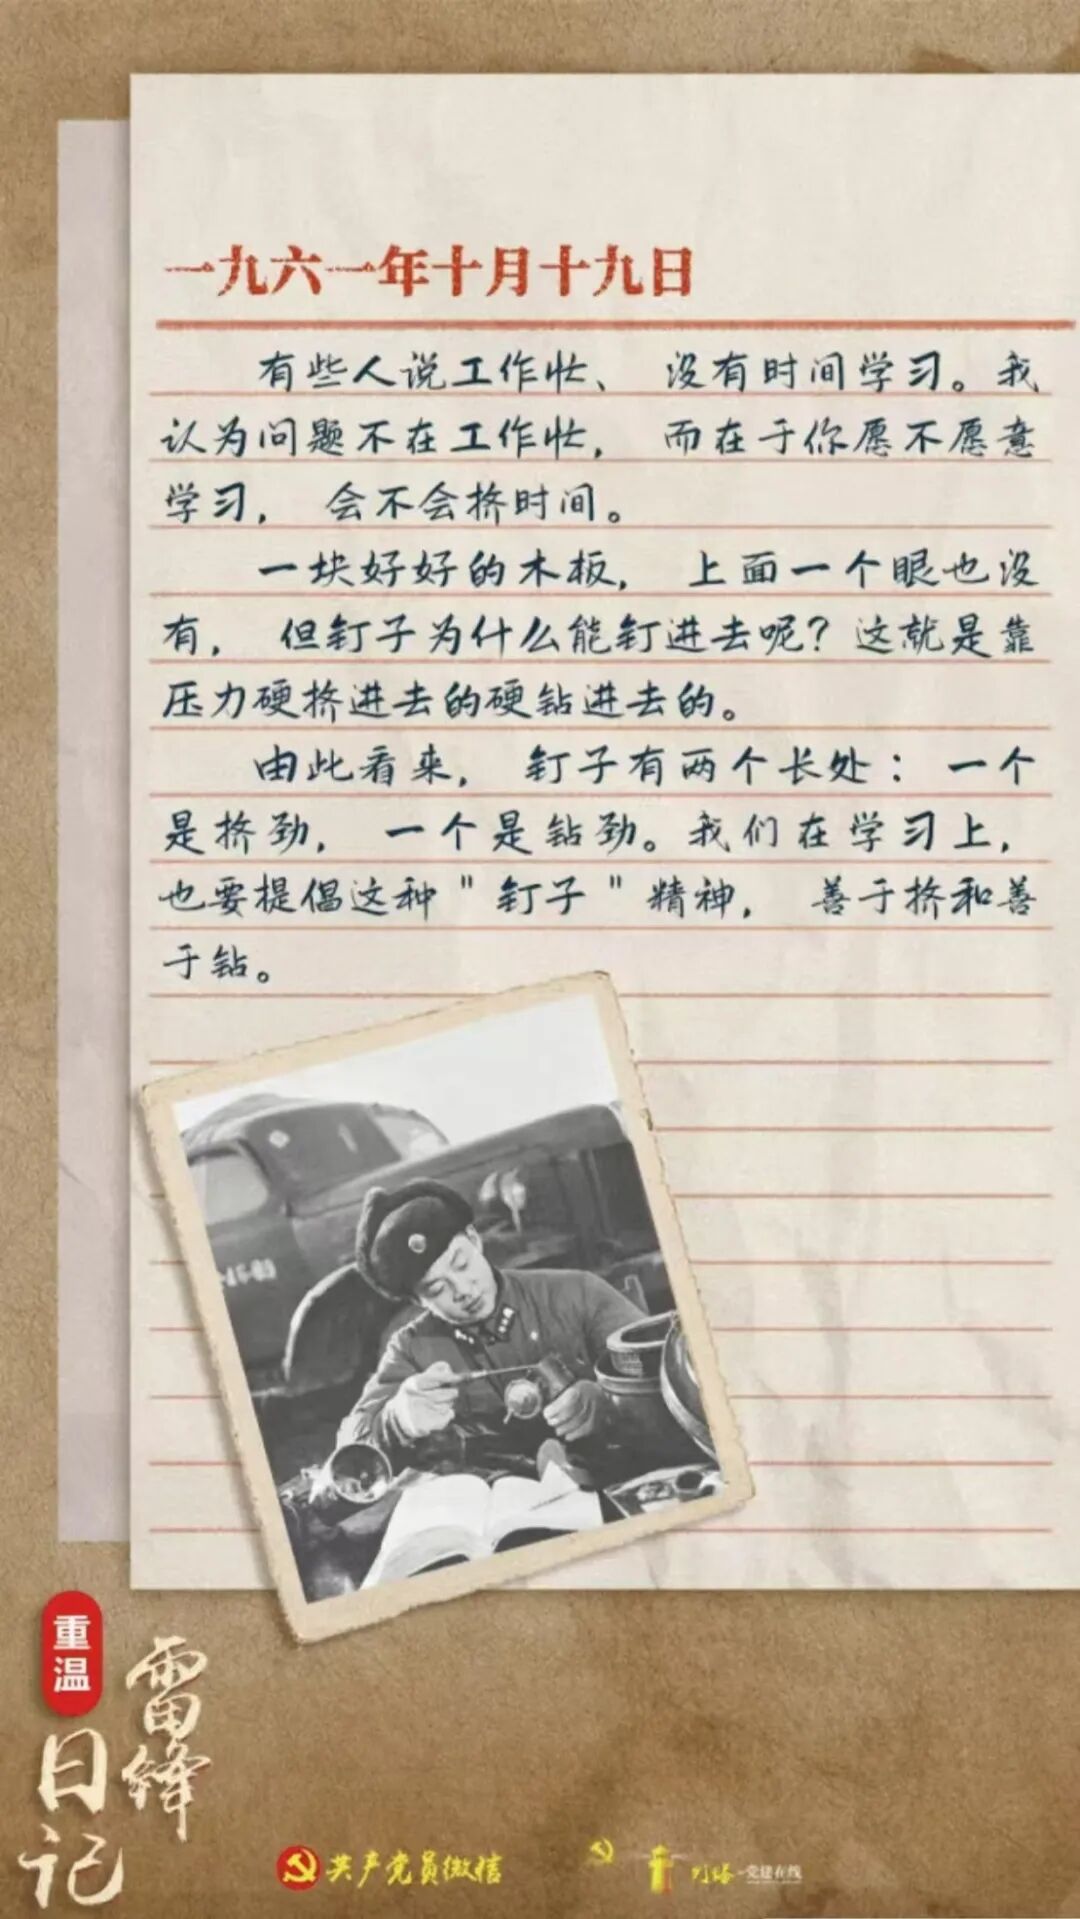 一九六一年十月十九日
有些人说工作忙、没有时间学习。我
认为问题不在工作忙，而在于你愿不愿意
学习，会不会挤时间。
一块好好的木板，上面一个眼也没
有，但钉子为什么能钉进去呢？这就是靠
压力硬挤进去的硬钻进去的。
由此看来，钉子有两个长处：一个
是挤劲，一个是钻劲。我们在学习上，
也要提倡这种"钉子"精神，善于挤和善
于钻。
重温
雷锋
日记
共产党员微信
灯塔-党建在线